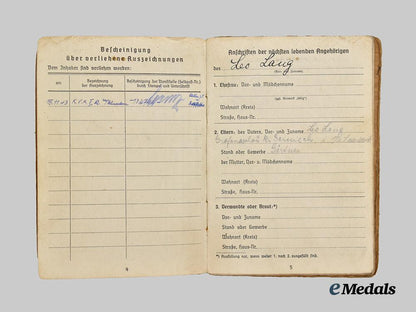 Bescheinigung
über verliehene Auszeichnungen
Vom Inhaber sind verliehen worden:
am
Bezeichnung der Auszeichnung
Bescheinigung der Dienststelle (Feldpost-Nr.) durch Stempel und Unterschrift
4
Anschriften der nächsten lebenden Angehörigen
des Leo Lang
(Vor- und Zuname)
1. Ehefrau: Vor- und Mädchenname
(ggf. Vermerk „ledig“)
Wohnort (Kreis)
Straße, Haus-Nr.
2. Eltern: des Vaters, Vor- und Zuname Leo Lang
Stand oder Gewerbe
der Mutter, Vor- u. Mädchenname
Wohnort (Kreis)
Straße, Haus-Nr.
3. Verwandte oder Braut:*)
Vor- und Zuname
Stand oder Gewerbe
Wohnort (Kreis)
Straße, Haus-Nr.
*) Ausfüllung nur, wenn weder 1. noch 2. ausgefüllt sind.
5
eMedals